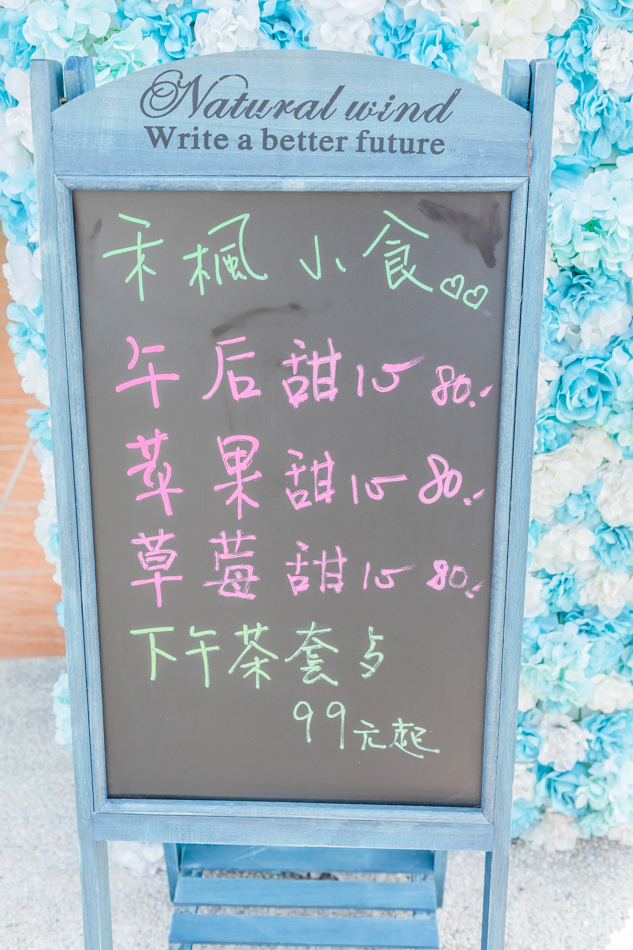 Natural wind
Write a better future
禾楓小食♡♡
午后甜心 80.-
苹果甜心 80.-
草莓甜心 80.-
下午茶套歺
99元起